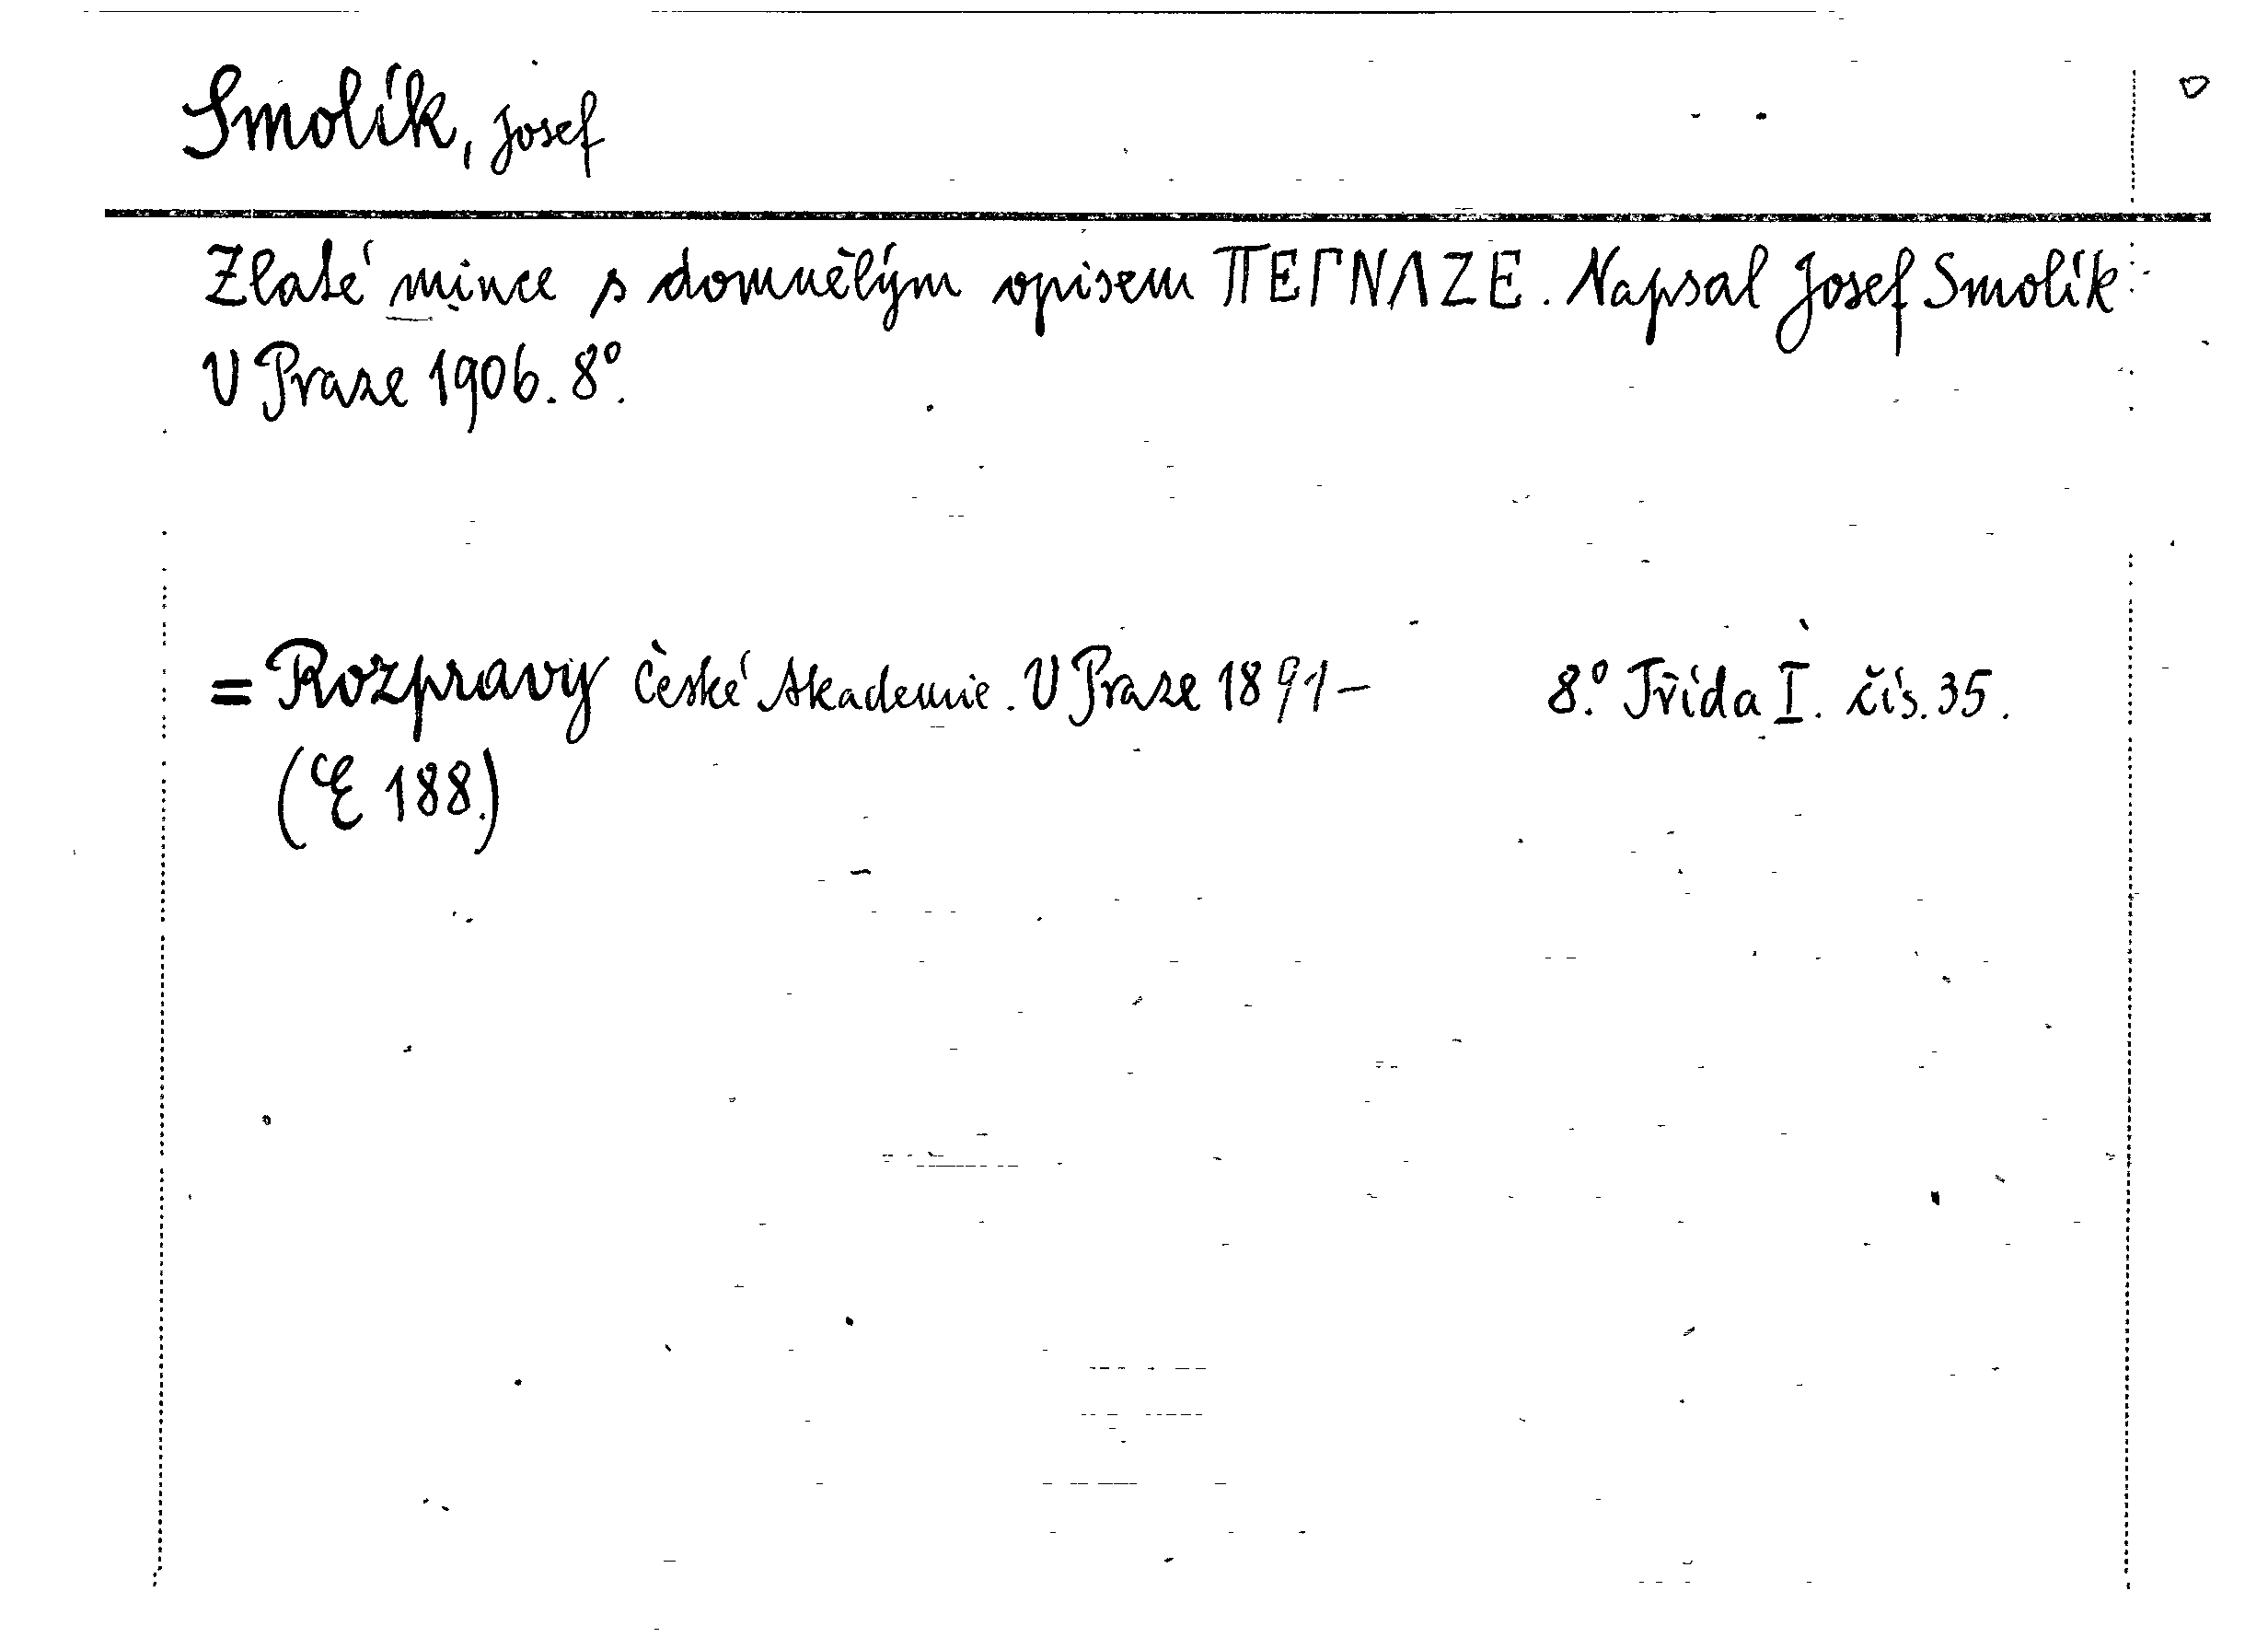 Smolík, Josef
Zlaté mince s domnělým opisem ΠΕΓΝΛΖΕ. Napsal Josef Smolík
V Praze 1906. 8°.
= Rozpravy České Akademie. V Praze 1891– 8.° Třída I. čís. 35.
(E 188.)